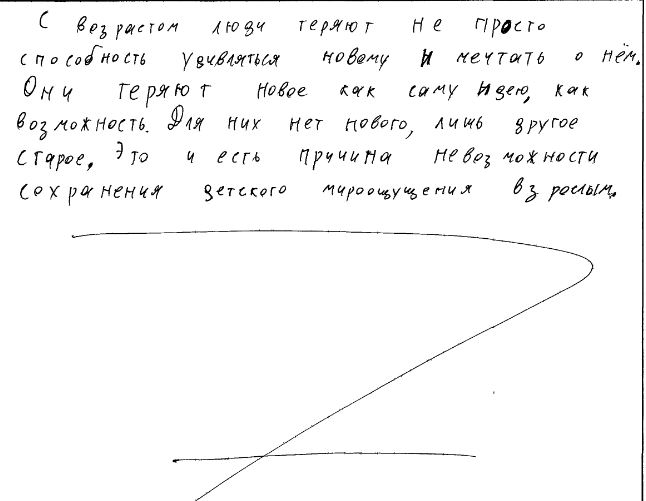 С возрастом люди теряют не просто
способность удивляться новому и мечтать о нём.
Они теряют новое как саму идею, как
возможность. Для них нет нового, лишь другое
старое. Это и есть причина невозможности
сохранения детского мироощущения взрослым.